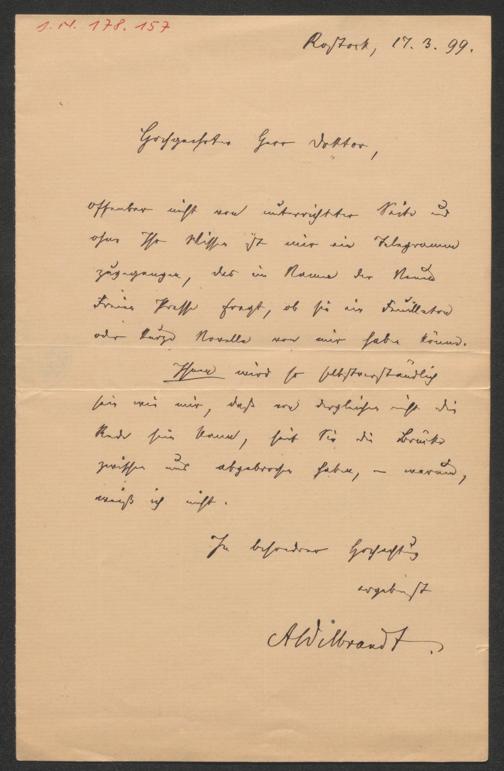 I.N. 178.157
Rostock, 17. 3. 99.
Hochgeehrter Herr Doktor,
offenbar nicht von unterrichteter Seite und
ohne Ihr Wissen ist mir ein Telegramm
zugegangen, das im Namen der Neuen
Freien Presse fragt, ob sie ein Feuilleton
oder kurze Novelle von mir haben könne.
Ihnen wird so selbstverständlich
sein wie mir, daß von dergleichen nicht die
Rede sein kann, seit Sie die Brücke
zwischen uns abgebrochen haben, – warum,
weiß ich nicht.
In besondrer Hochachtung
ergebenst
AWilbrandt.